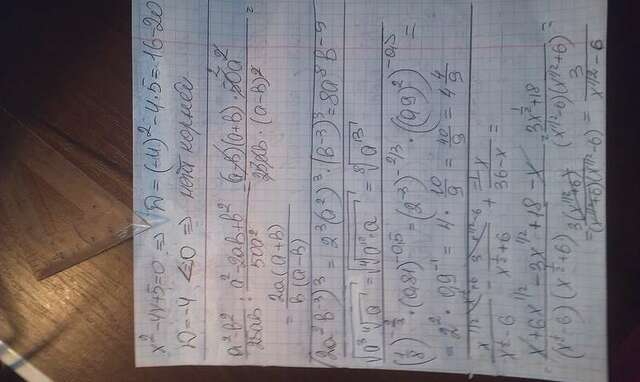 x² - 4x + 5 = 0 ⇒ D = (-4)² - 4·5 = 16 - 20
D = -4 < 0 ⇒ нет корней
(a² - b²)/(25ab) : (a² - 2ab + b²)/(50a²) = ((a-b)(a+b)·50a²)/(25ab·(a-b)²) =
= 2a(a+b)/(b(a-b))
(2a²b⁻³)³ = 2³(a²)³·(b⁻³)³ = 8a⁶b⁻⁹
(1/8)^(2/3)·(0,81)^(-0,5) = (2⁻³)^(-2/3)·((0,9)²)^(-0,5) =
= 2²·0,9⁻¹ = 4·10/9 = 40/9 = 4 4/9
x/(x^(1/2) - 6) - 3/(x^(1/2) + 6) + x/(36 - x) =
= (x + 6x^(1/2) - 3x^(1/2) + 18 - x)/((x^(1/2) - 6)(x^(1/2) + 6)) = (3x^(1/2) + 18)/((x^(1/2) - 6)(x^(1/2) + 6)) =
= 3(x^(1/2) + 6)/((x^(1/2) + 6)(x^(1/2) - 6)) = 3/(x^(1/2) - 6)